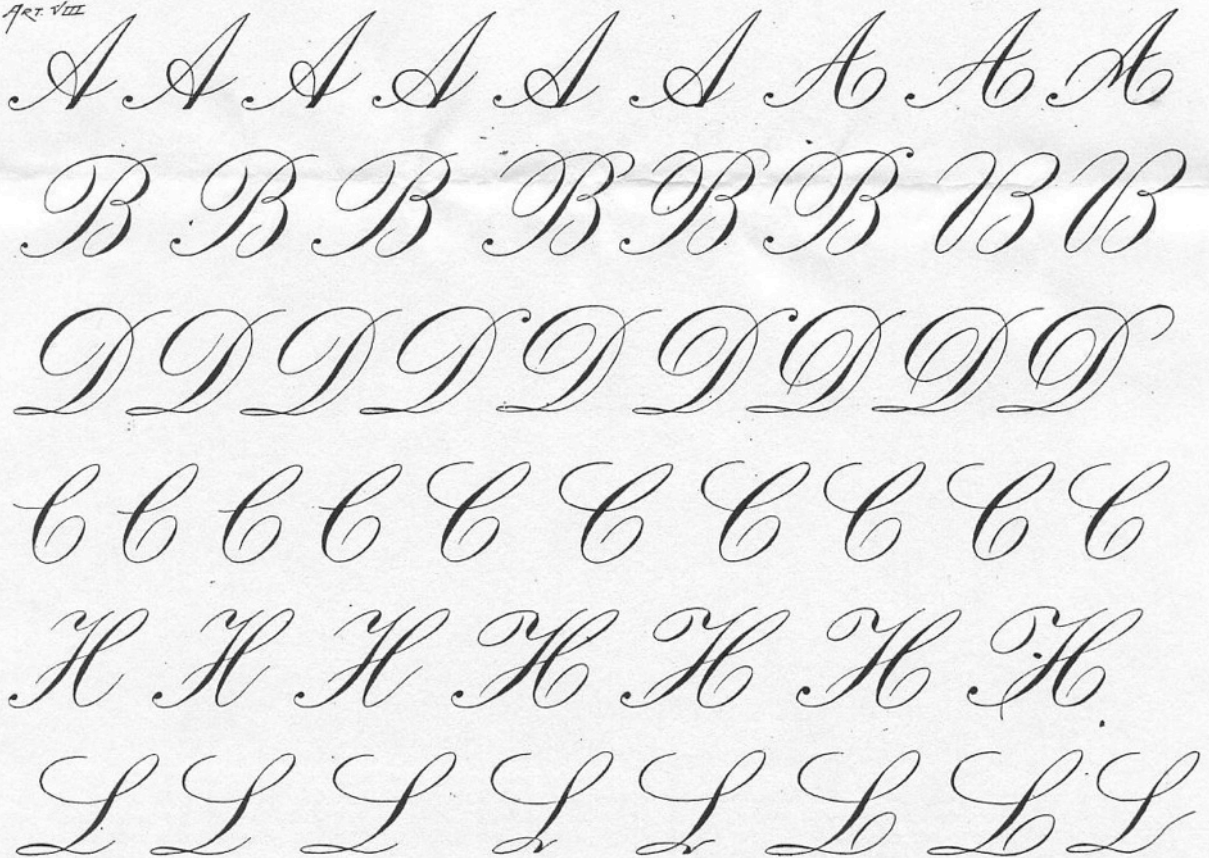 ART. VIII
A A A A A A A A A
B B B B B B B B
D D D D D D D D D
C C C C C C C C C C
H H H H H H H
L L L L L L L L